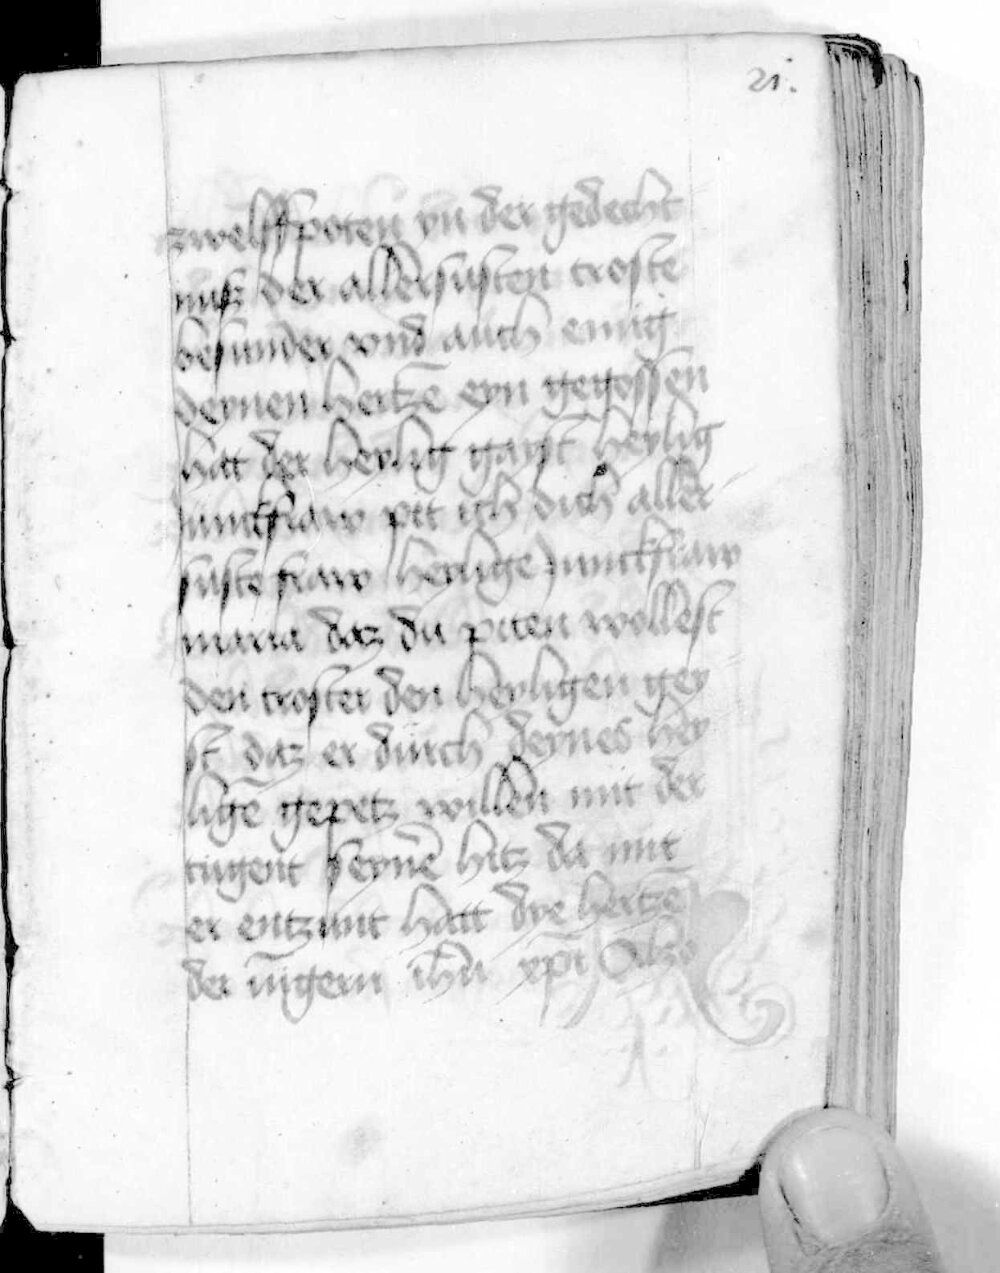 21.
zwelffpoten vn̄ der gedecht
nusz der allersusten troste
besunder vnd auch einig
deynen hertzē eyn gegossen
hat der heylig gayst heylig
junckfraw pit ich dich aller
suste fraw heilige junckfraw
maria daz du piten wollest
den troster den heyligen gey
st daz er durch deynes hey
ligē gepetz willen mit der
tugent seynē hitz da mit
er entzunt hatt dye hertzē
der iūgern ih̄u xp̄i Also